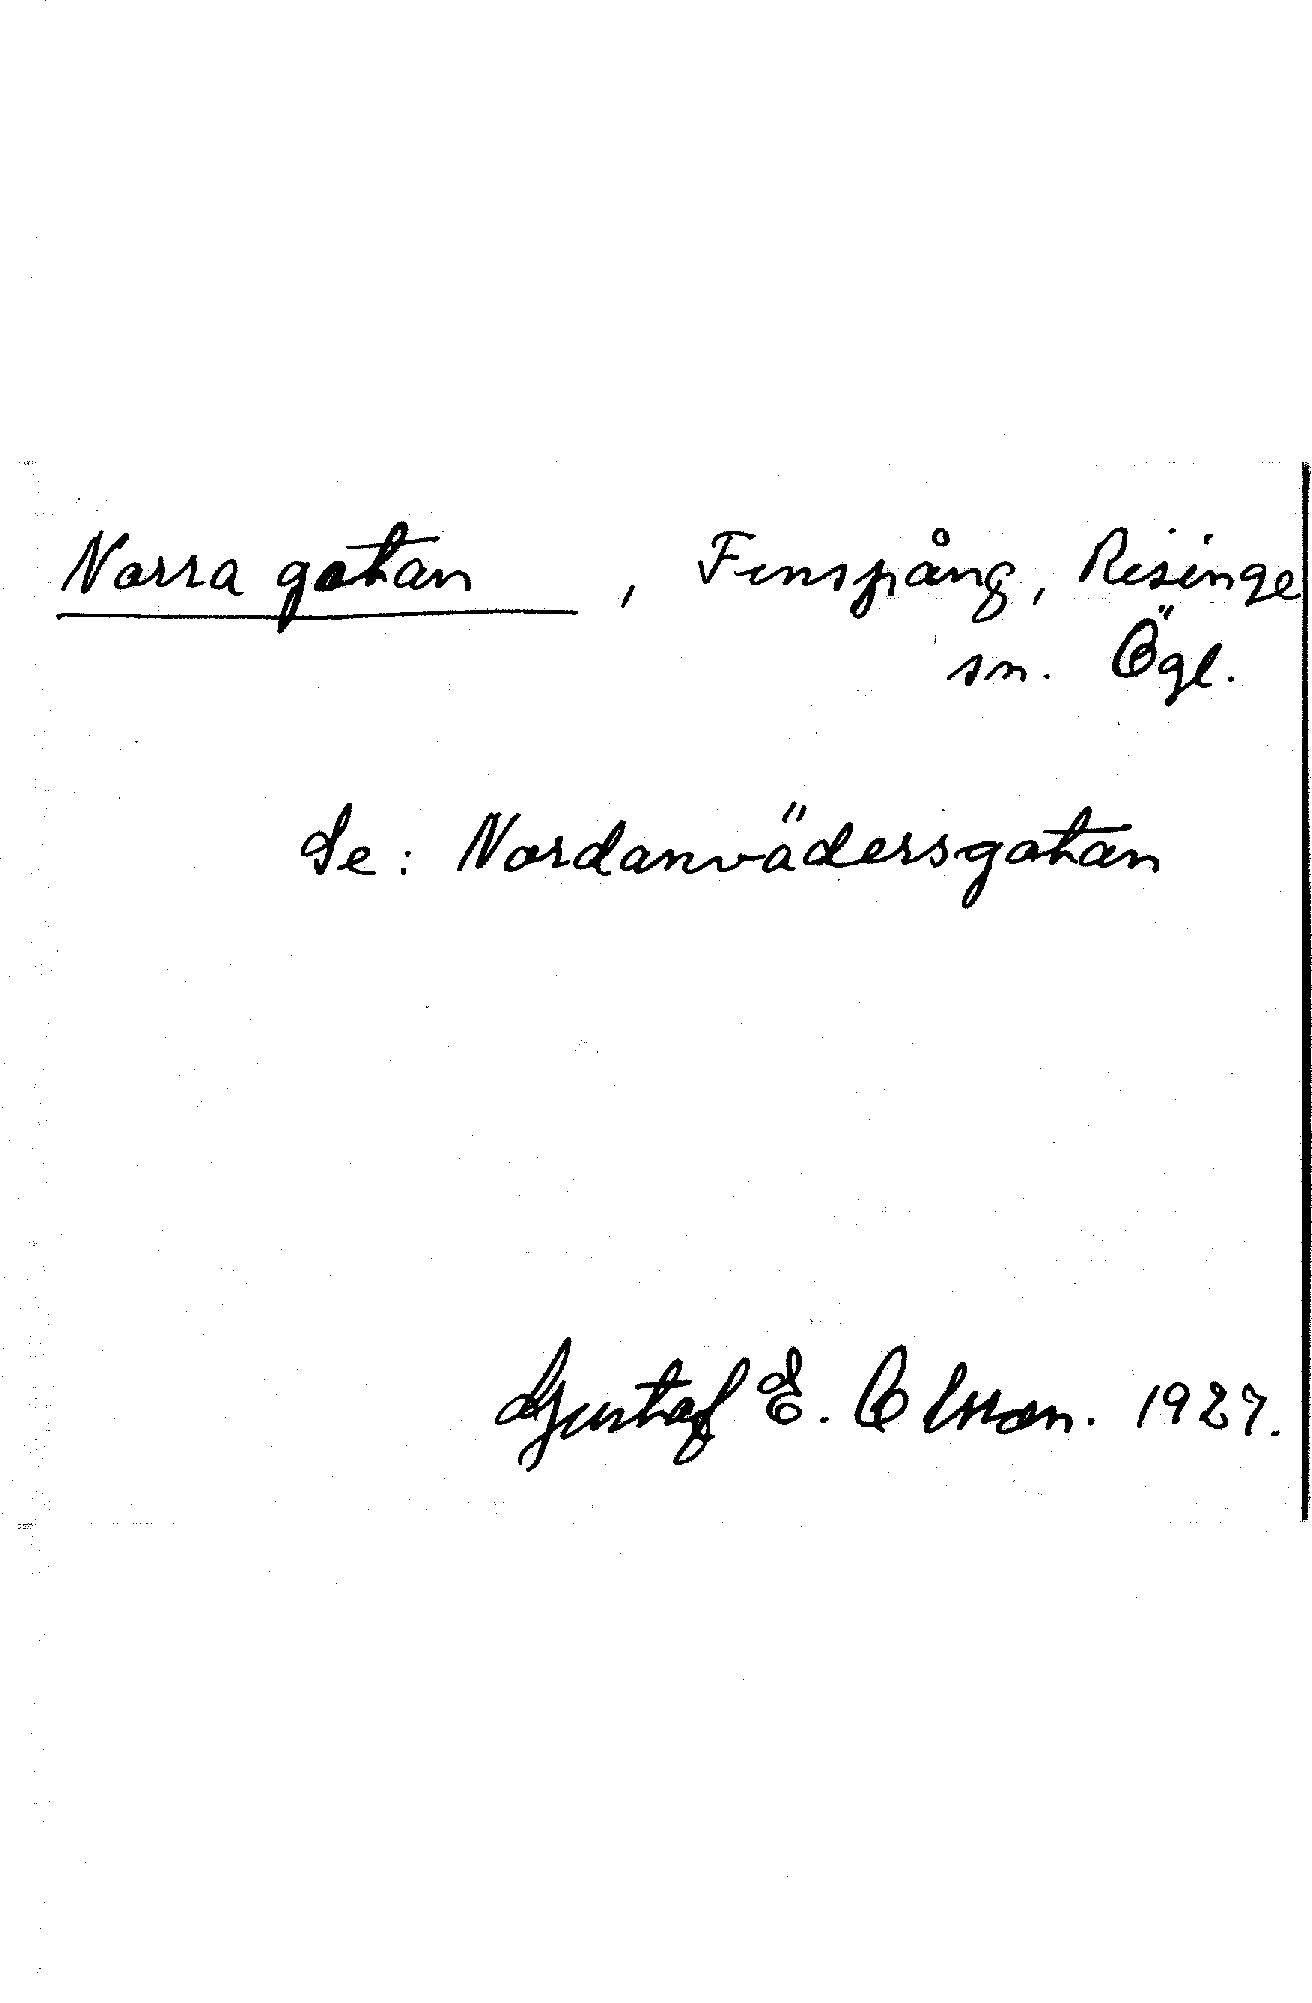 Norra gatan , Finspång, Risinge
sn. Ögl.
Se: Nordanvädersgatan
Gustaf E. Olsson. 1927.